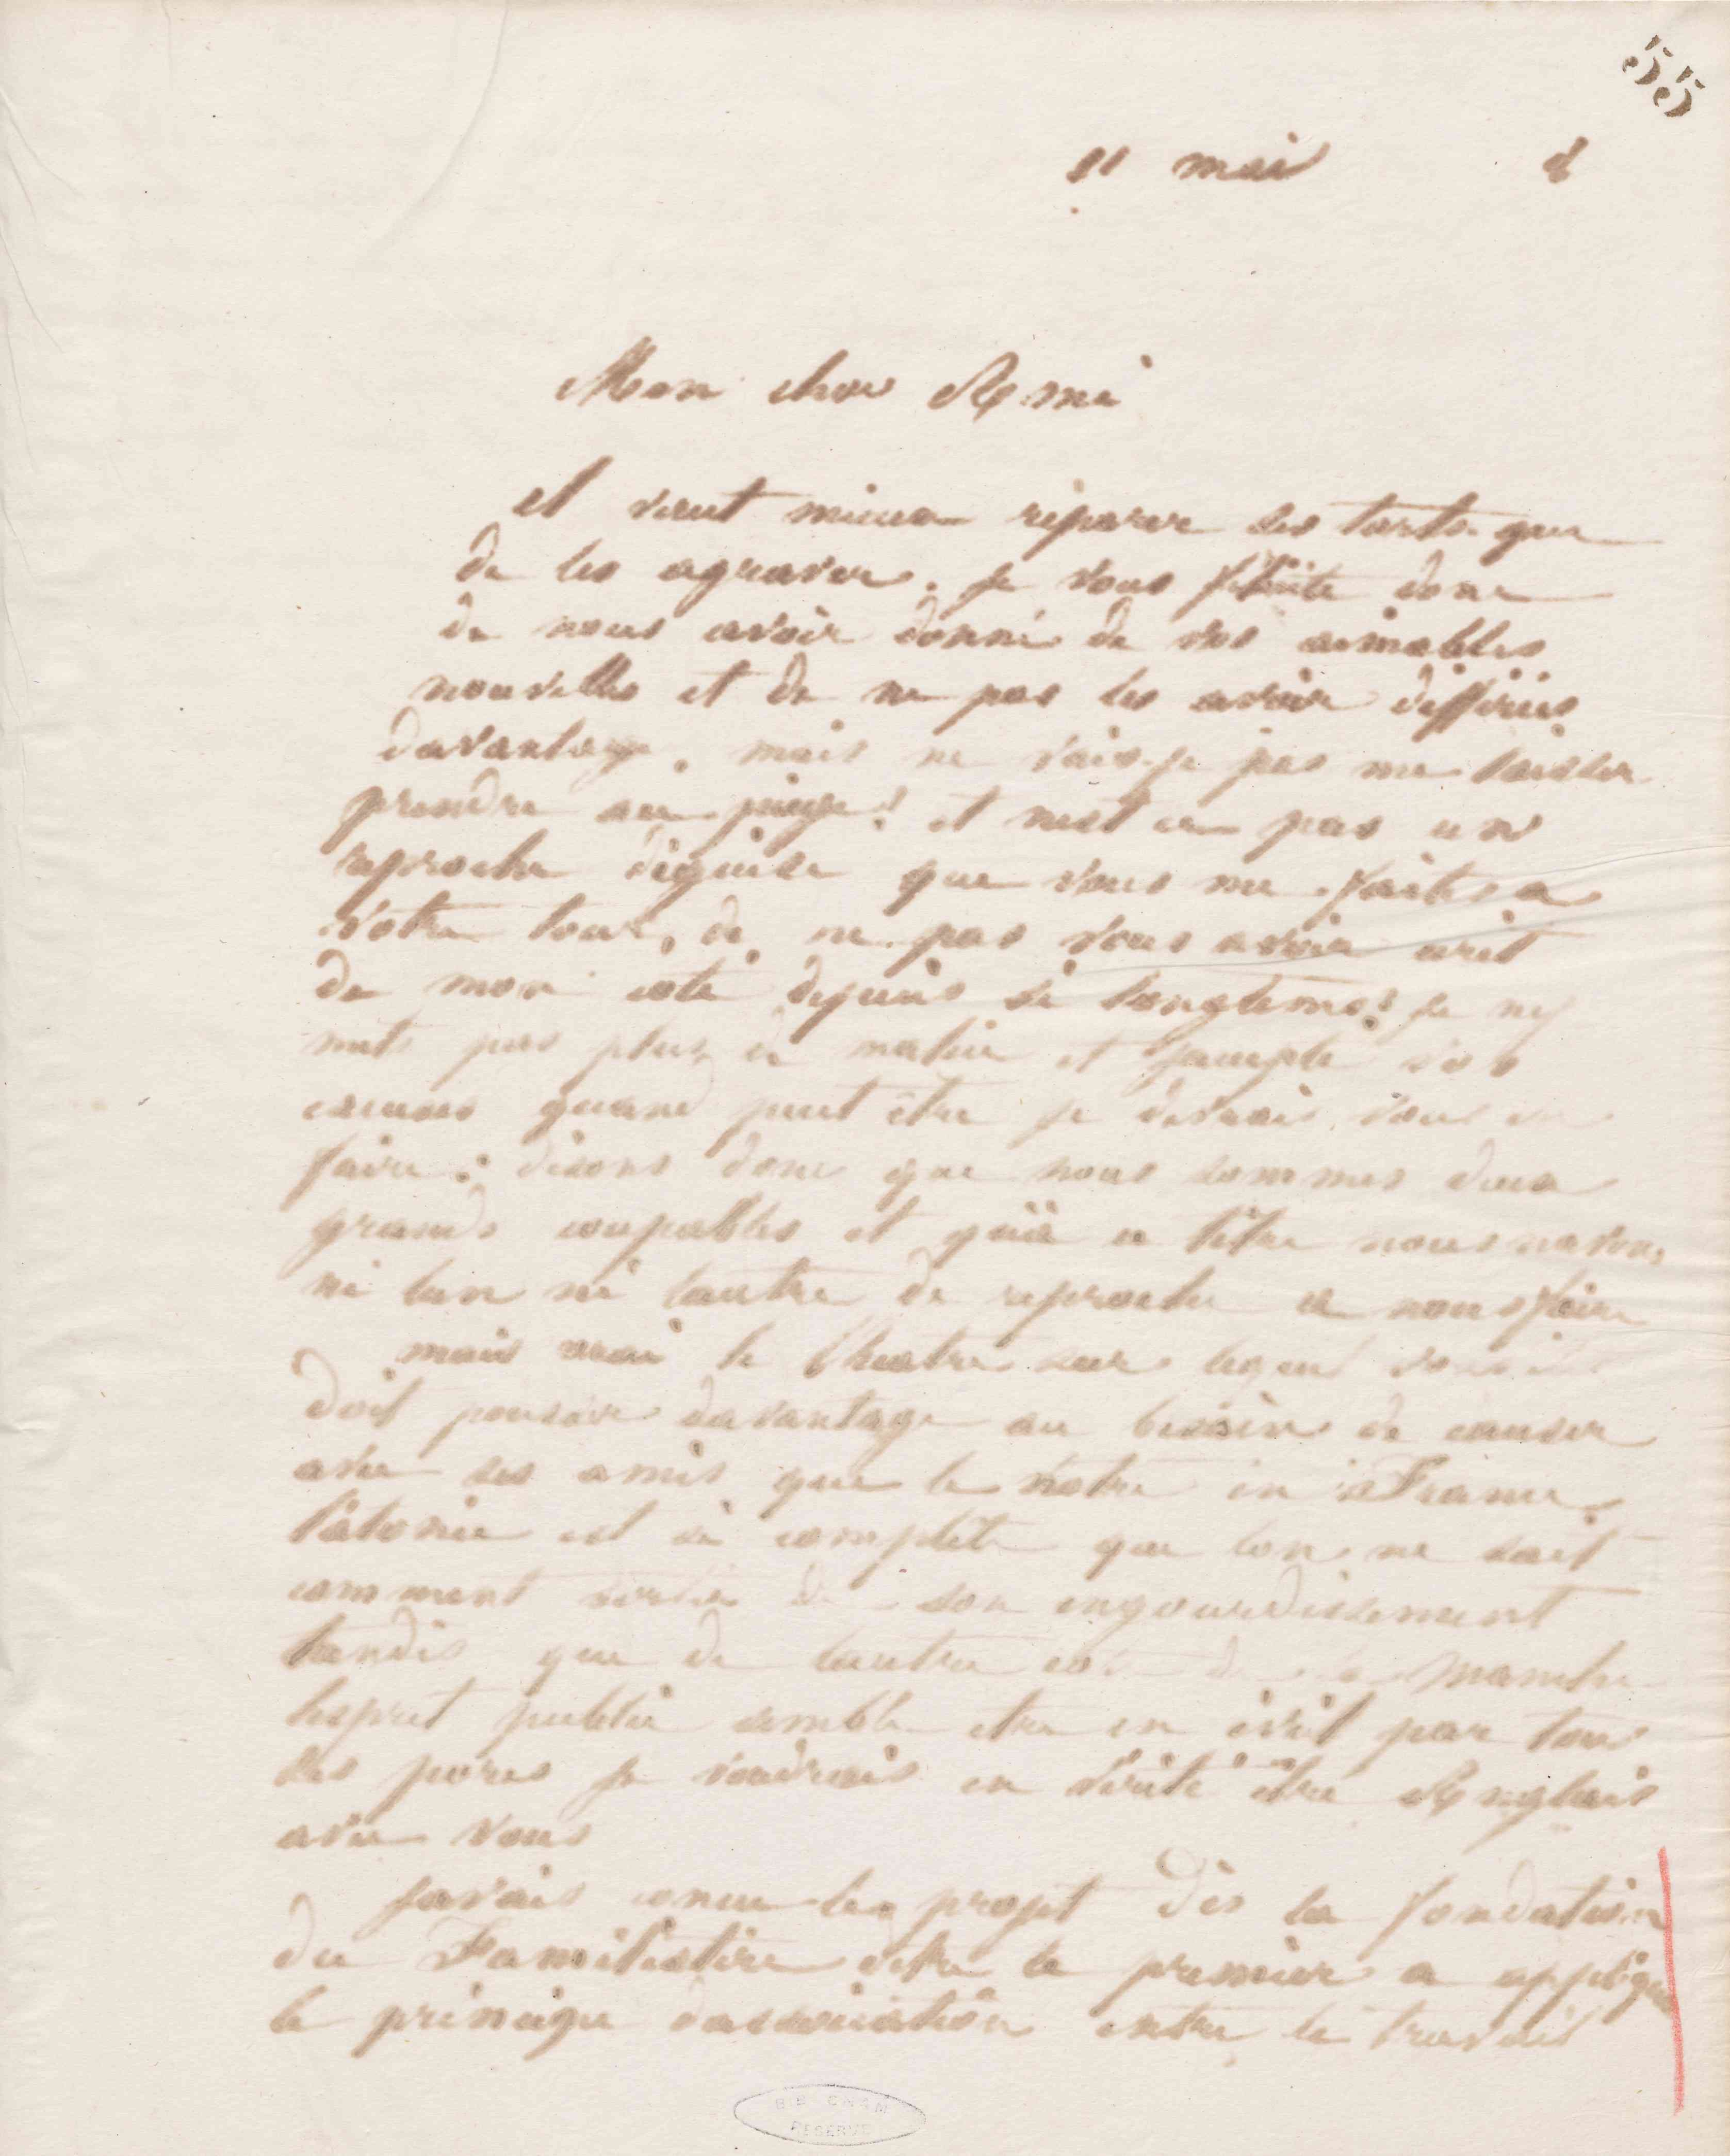 55
11 mai
Mon cher Ami
Il vaut mieux réparer ses torts que
de les agraver. Je vous félicite donc
de nous avoir donné de vos aimables
nouvelles et de ne pas les avoir différées
davantage. mais ne vais-je pas me laisser
prendre au piège! et nest ce pas un
reproche déguisé que vous me faites a
votre tour, de ne pas vous avoir écrit
de mon coté depuis si longtemps? je ny
mets pas plus de malice et jaccepte vos
excuses quand peut être je devrais vous en
faire: disons donc que nous sommes deux
grands coupables et quà ce titre nous navons
ni lun ni lautre de reproche a nous faire
mais vrai le theatre sur lequel vous
doit pousser davantage au besoin de causer
avec ses amis que le notre en France.
l'atonie est si complète que lon ne sait
comment sortir de son engourdissement
tandis que de lautre coté de la manche
lesprit public semble etre en éveil par tous
les pores je voudrais en vérité être Anglais
avec vous
Javais conçu le projet Dès la fondation
du Familistère detre le premier a appliquer
le principe dassociation entre le travail
BIB CNAM
RESERVE